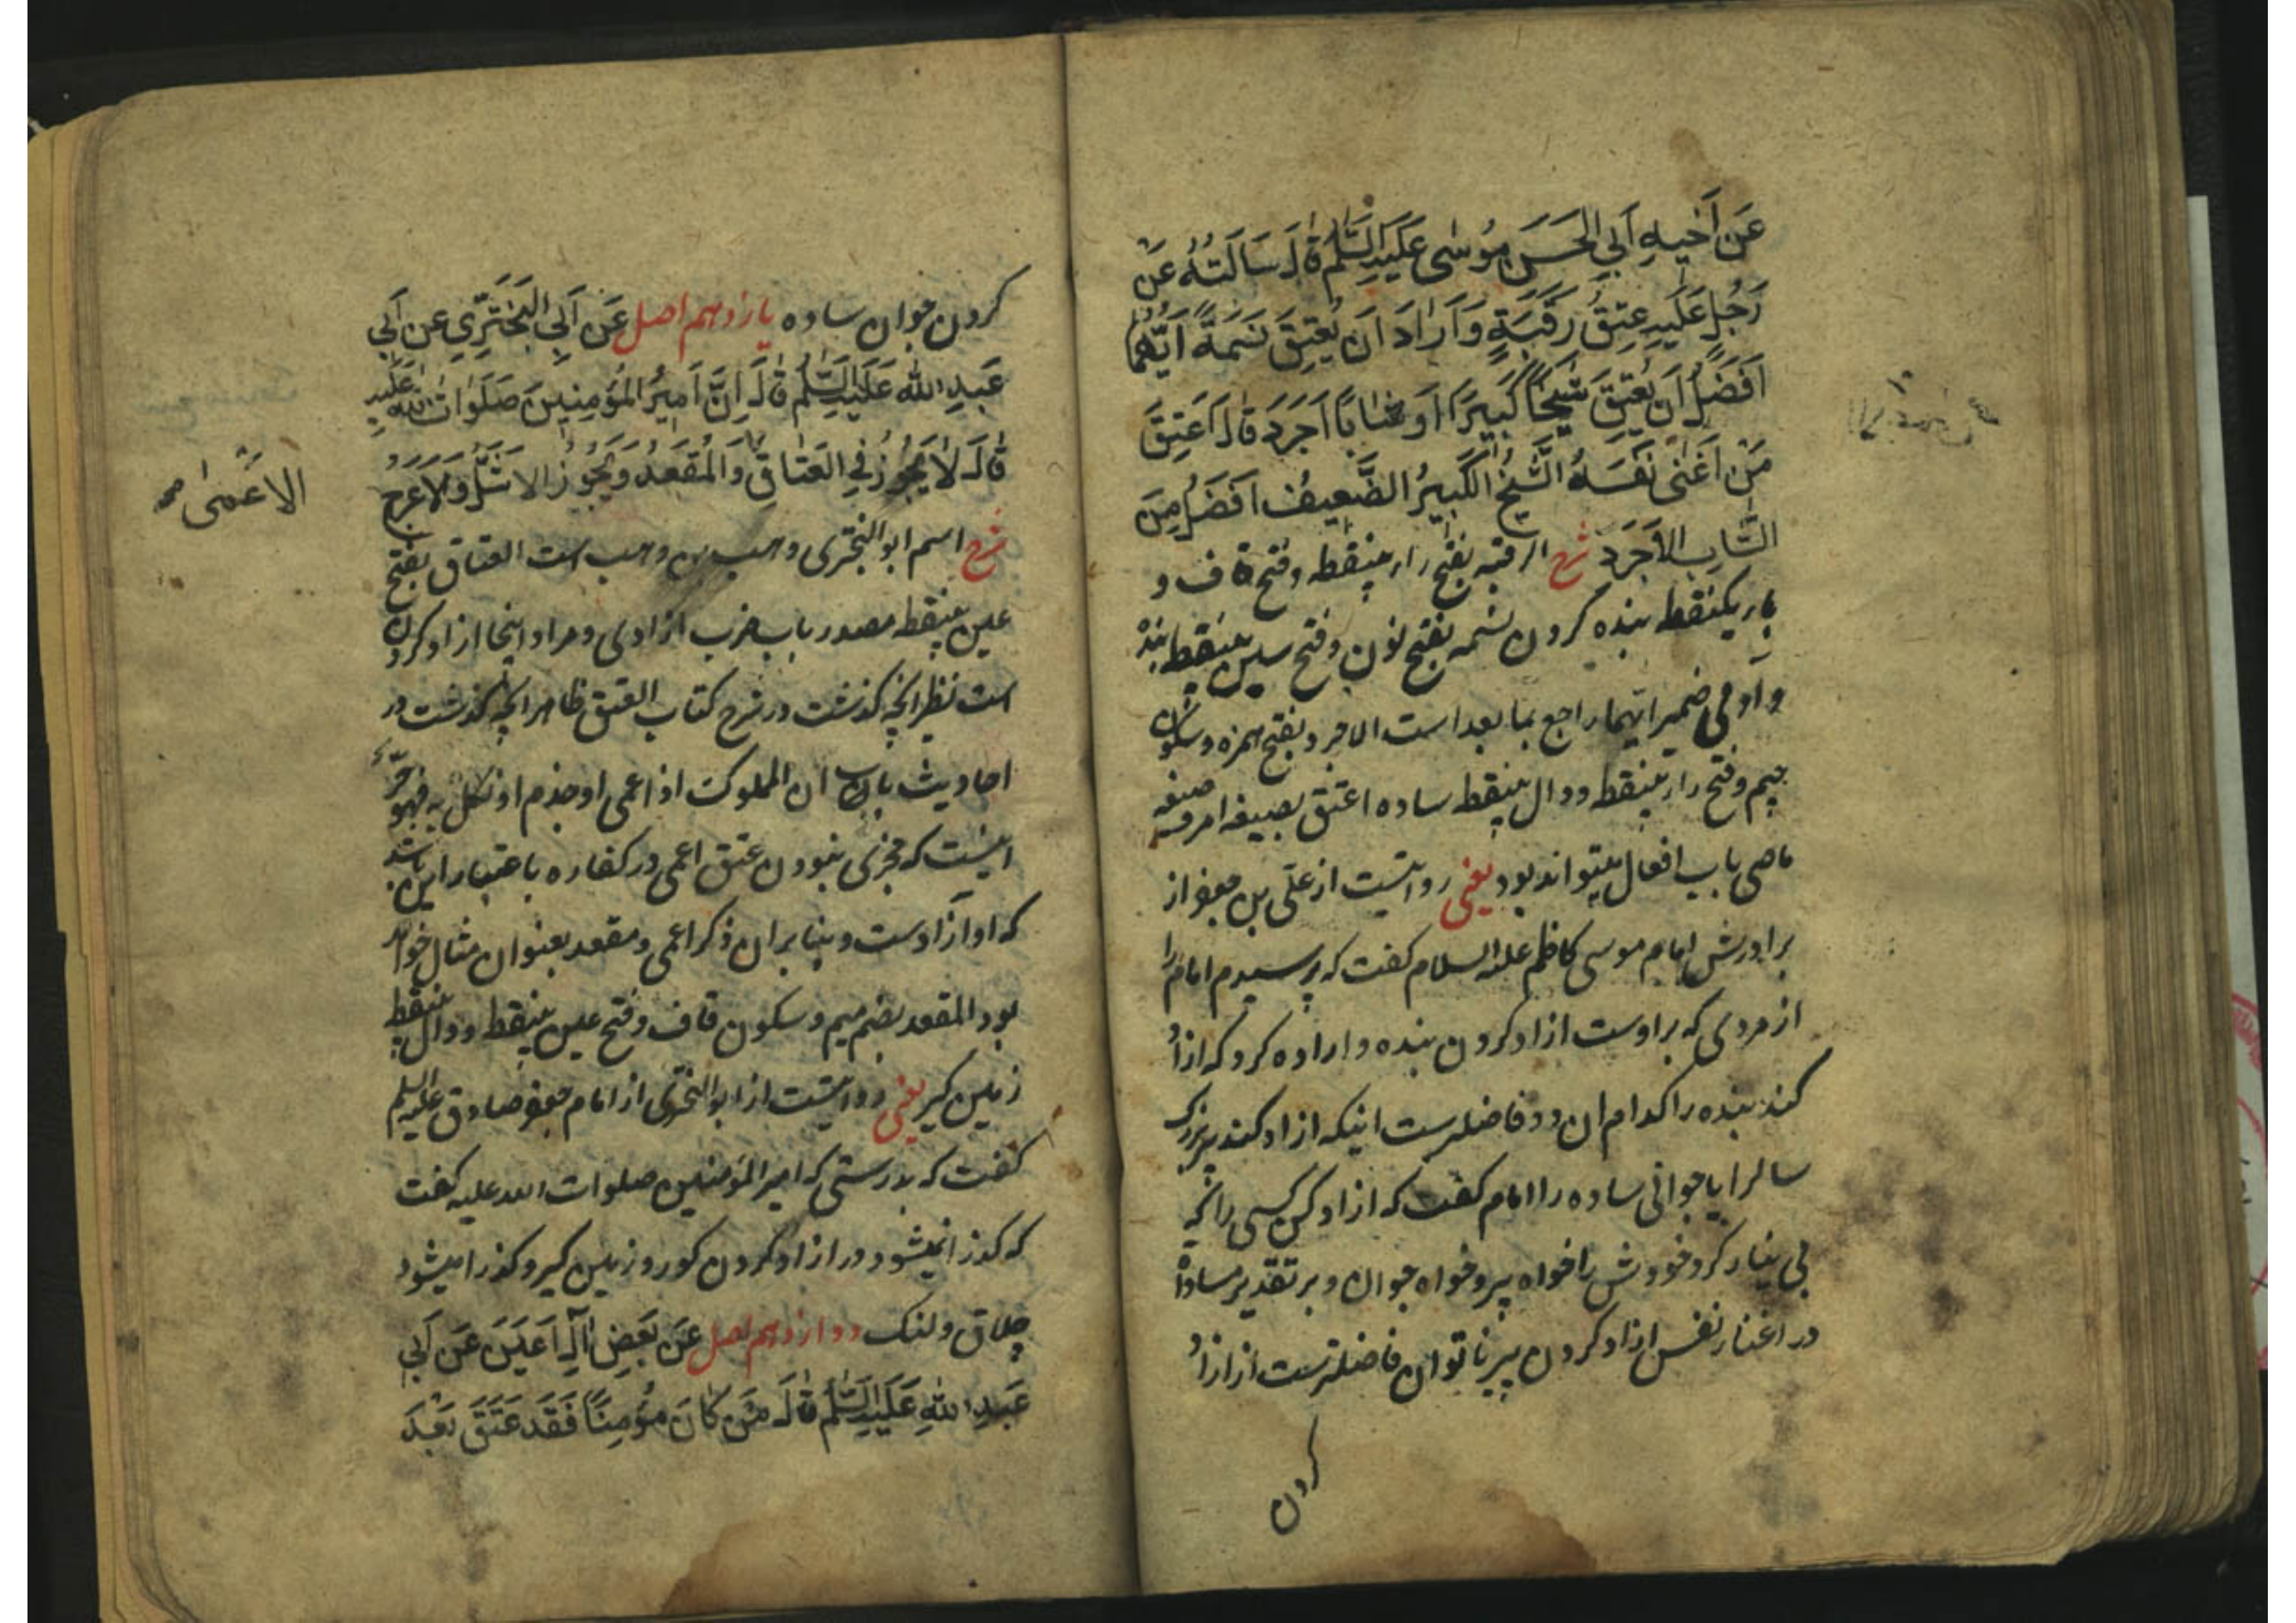 عَنْ أَخِیهِ أَبِی الْحَسَنِ مُوسٰی عَلَیْهِ السَّلَمُ قٰالَ سَأَلْتُهُ عَنْ
رَجُلٍ عَلَیْهِ عِتْقُ رَقَبَةٍ وَأَرٰادَ أَنْ یُعْتِقَ نَسَمَةً أَیُّهُمٰا
أَفْضَلُ أَنْ یُعْتِقَ شَیْخًا کَبِیرًا أَوْ شٰابًّا أَجْرَدَ قٰالَ أَعْتِقْ
مَنْ أَغْنٰی نَفْسَهُ الشَّیْخُ الْکَبِیرُ الضَّعِیفُ أَفْضَلُ مِنَ
الشَّابِّ الْأَجْرَدِ شرح الرقبه بفتح راء بینقطه و فتح قاف و
باء یکنقطه بنده کردن نسمه بفتح نون و فتح سین بینقطه بنده
و آدمی ضمیر ایّهما راجع بما بعد است الاجرد بفتح همزه و سکون
جیم و فتح راء بینقطه و دال بینقطه ساده اعتق بصیغه امر و صیغه
ماضی باب افعال میتواند بود یعنی روایتست از علّی بن جعفر از
برادرش امام موسی کاظم علیه السلام گفت که پرسیدم امام را
از مردی که بر اوست ازاد کردن بنده و اراده کرد که ازاد
کند بنده را کدام ان دو فاضلترست اینکه ازاد کند پیر بزرگ
سال را یا جوانی ساده را امام گفت که ازاد کن کسی را که
بی نیاز کرد خودش را خواه پیر و خواه جوان و بر تقدیر مساواة
در اغناء نفس ازاد کردن پیر ناتوان فاضلترست از ازاد
کردن
کردن جوان ساده یازدهم اصل عَنْ أَبِی الْبَخْتَرِیِّ عَنْ أَبِی
عَبْدِ اللّٰهِ عَلَیْهِ السَّلَمُ قٰالَ إِنَّ أَمِیرَ الْمُؤْمِنِینَ صَلَوٰاتُ اللّٰهِ عَلَیْهِ
قٰالَ لٰا یَجُوزُ فِی الْعَتٰاقِ وَالْمُقْعَدُ وَیَجُوزُ الْأَشَلُّ وَالْأَعْرَجُ
الْأَعْمٰی صح
شرح اسم ابو البختری وهب بن وهب است العتاق بفتح
عین بینقطه مصدر باب ضرب ازادی و مراد اینجا ازاد کردن
است نظیر انچه گذشت در شرح کتاب العتق ظاهر انچه گذشت در
احادیث باب ان المملوک اذا عمی او جذم او نکل به فهو حرّ
اینست که مجزی نبودن عتق اعمی در کفاره باعتبار این باشد
که او آزادست و بنابر ان ذکر اعمی و مقعد بعنوان مثال خواهد
بود المقعد بضم میم و سکون قاف و فتح عین بینقطه و دال بینقطه
زمین گیر یعنی روایتست از ابو البختری از امام جعفر صادق علیه السلم
گفت که بدرستی که امیر المؤمنین صلوات الله علیه گفت
که گذرا نمیشود در ازاد کردن کور و زمین گیر و گذرا میشود
چلاق و لنگ دوازدهم اصل عَنْ بَعْضِ آلِ أَعْیَنَ عَنْ أَبِی
عَبْدِ اللّٰهِ عَلَیْهِ السَّلَمُ قٰالَ مَنْ کَانَ مُؤْمِنًا فَقَدْ عَتَقَ بَعْدَ